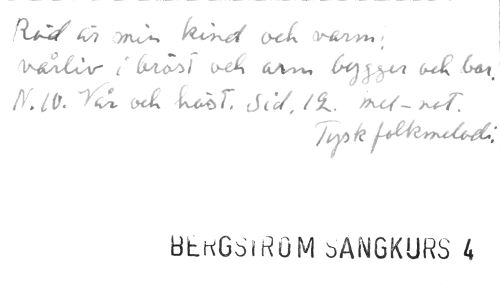 Röd är min kind och varm;
vårliv i bröst och arm bygger och bor.
N. 10. Vår och höst. Sid. 12. mel-not.
Tysk folkmelodi.
BERGSTRÖM SÅNGKURS 4